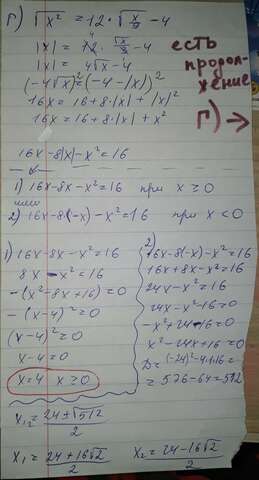 г) √x² = 12 · √(x/9) - 4
|x| = 12 · √x/3 - 4
|x| = 4√x - 4
(-4√x)² = (-4 - |x|)²
16x = 16 + 8·|x| + |x|²
16x = 16 + 8·|x| + x²
есть
продол-
жение
г) →
16x - 8|x| - x² = 16
1) 16x - 8x - x² = 16 при x ≥ 0
или
2) 16x - 8(-x) - x² = 16 при x < 0
1) 16x - 8x - x² = 16
8x - x² = 16
-(x² - 8x + 16) = 0
-(x - 4)² = 0
(x - 4)² = 0
x - 4 = 0
x = 4 x ≥ 0
2) 16x - 8(-x) - x² = 16
16x + 8x - x² = 16
24x - x² = 16
24x - x² - 16 = 0
-x² + 24x - 16 = 0
x² - 24x + 16 = 0
D = (-24)² - 4·1·16 =
= 576 - 64 = 512
x₁,₂ = (24 ± √512)/2
x₁ = (24 + 16√2)/2 x₂ = (24 - 16√2)/2